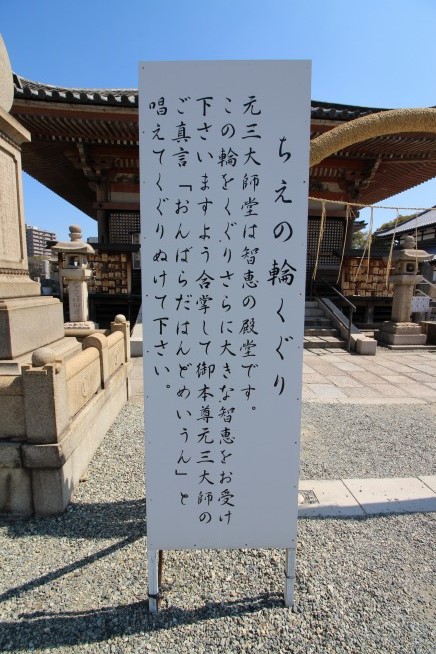 ちえの輪くぐり
元三大師堂は智恵の殿堂です。
この輪をくぐりさらに大きな智恵をお受け
下さいますよう合掌して御本尊元三大師の
ご真言「おんばらだはんどめいうん」と
唱えてくぐりぬけて下さい。